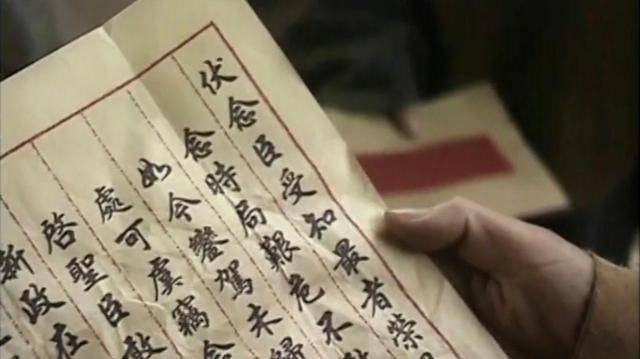 伏念臣受知最者榮
念時局艱危不
如今鑾駕未歸
處可虞竊念
啓聖臣敢
新政在